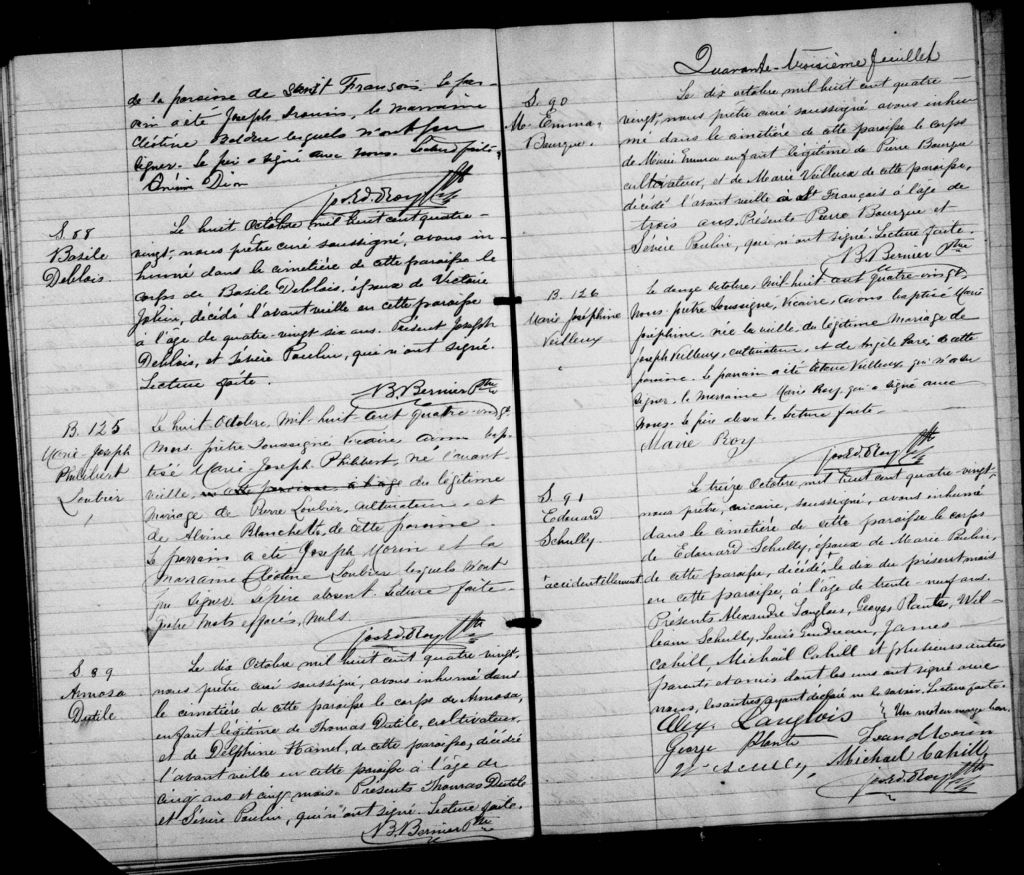 de la paroisse de saint François. Le par-
rain a été Joseph , la marraine
Célestine lesquels n'ont pu
signer. Le père a signé avec nous. Lecture faite.
Onésime Dion
Jos. Ed. Roy Ptre
S. 88
Basile
Deblois.
Le huit Octobre mil huit cent quatre-
vingt, nous prêtre curé soussigné, avons in-
humé dans le cimetière de cette paroisse le
corps de Basile Deblois, époux de Victoire
Jolin, décédé l'avant veille en cette paroisse
à l'âge de quatre-vingt six ans. Présent Joseph
Deblois, et Sévère Poulin, qui n'ont signé.
Lecture faite.
N. B. Bernier Ptre
B. 125
Marie-Joseph
Philibert
Loubier
Le huit Octobre, mil-huit cent quatre-vingt
Nous prêtre soussigné Vicaire avons bap-
tisé Marie Joseph Philibert, né l'avant-
veille, du légitime
mariage de Pierre Loubier, cultivateur, et
de Alvine Blanchette, de cette paroisse.
Le parrain a été Joseph Morin et la
marraine Célestine Loubier lesquels n'ont
pu signer. Le père absent. Lecture faite.
quatre mots effacés, nuls.
Jos. Ed. Roy Ptre
S. 89
Amosa
Dutile
Le dix Octobre mil huit cent quatre vingt,
nous prêtre curé soussigné, avons inhumé dans
le cimetière de cette paroisse le corps de Amosa,
enfant légitime de Thomas Dutile, cultivateur,
et de Delphine Hamel, de cette paroisse, décédé
l'avant veille en cette paroisse à l'âge de
cinq ans et cinq mois. Présents Thomas Dutile
et Sévère Poulin, qui n'ont signé. Lecture faite.
N. B. Bernier Ptre
Quarante-troisième feuillet
S. 90
M. Emma
Bourque.
Le dix octobre, mil huit cent quatre-
vingt, nous prêtre curé soussigné avons inhu-
mé dans le cimetière de cette paroisse le corps
de Marie Emma enfant légitime de Pierre Bourque
cultivateur, et de Marie Veilleux de cette paroisse,
décédé l'avant veille à St Français à l'âge de
trois ans. Présents Pierre Bourque et
Sévère Poulin, qui n'ont signé. Lecture faite.
N. B. Bernier Ptre
B. 126
Marie Joséphine
Veilleux
Le douze Octobre, Mil-huit cent quatre-vingt,
Nous prêtre soussigné, Vicaire, avons baptisé Marie
Joséphine, née la veille du légitime mariage de
Joseph Veilleux, cultivateur, et de Angèle Paré de cette
paroisse. Le parrain a été Veilleux, qui n'a su
signer, la marraine Marie Roy, qui a signé avec
Nous. Le père absent. Lecture faite.
Marie Roy
Jos. Ed. Roy Ptre
S. 91
Edouard
Schully.
+ accidentellement
Le treize Octobre mil huit cent quatre-vingt,
nous prêtre, vicaire, soussigné, avons inhumé
dans le cimetière de cette paroisse le corps
de Edouard Schully, époux de Marie Poulin,
de cette paroisse, décédé, + le dix du présent mois
en cette paroisse, à l'âge de trente-neuf ans.
Présents Alexandre Langlois, Georges Plante, Wil-
liam Schully, Louis Gendreau, James
Cahill, Michaël Cahill et plusieurs autres
parents et amis dont les uns ont signé avec
nous, les autres ayant déclaré ne le savoir. Lecture faite.
Alex Langlois Un mot en marge bon.
George Plante
W Scully, Michael Cahill
Jos. Ed. Roy Ptre